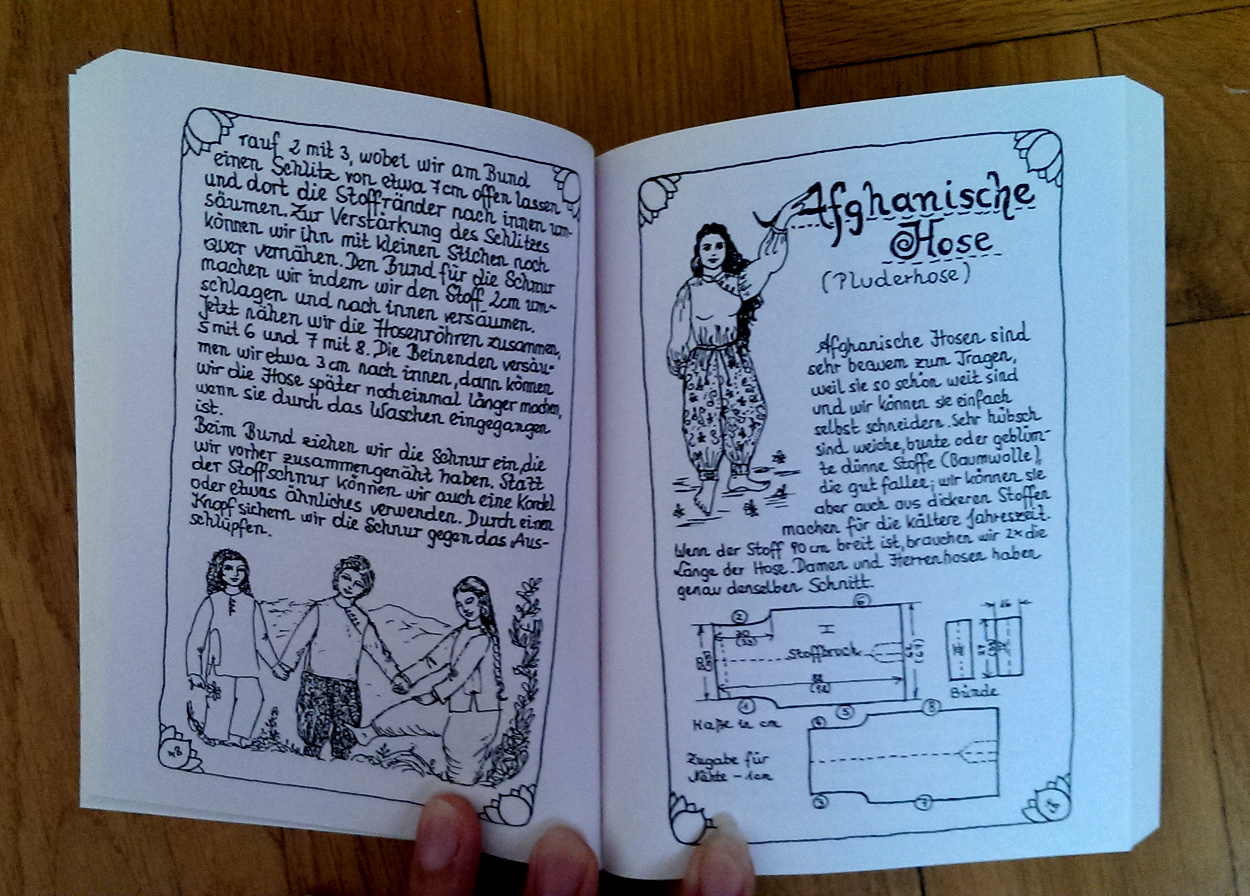 rauf 2 mit 3, wobei wir am Bund
einen Schlitz von etwa 7cm offen lassen
und dort die Stoffränder nach innen um-
säumen. Zur Verstärkung des Schlitzes
können wir ihn mit kleinen Stichen noch
quer vernähen. Den Bund für die Schnur
machen wir indem wir den Stoff 2cm um-
schlagen und nach innen versäumen.
Jetzt nähen wir die Hosenröhren zusammen,
5 mit 6 und 7 mit 8. Die Beinenden versäu-
men wir etwa 3cm nach innen, dann können
wir die Hose später nocheinmal länger machen,
wenn sie durch das Waschen eingegangen
ist.
Beim Bund ziehen wir die Schnur ein, die
wir vorher zusammengenäht haben. Statt
der Stoffschnur können wir auch eine Kordel
oder etwas ähnliches verwenden. Durch einen
Knopf sichern wir die Schnur gegen das Aus-
schlüpfen.
Afghanische
Hose
(Pluderhose)
Afghanische Hosen sind
sehr bequem zum Tragen,
weil sie so schön weit sind
und wir können sie einfach
selbst schneidern. Sehr hübsch
sind weiche, bunte oder geblüm-
te dünne Stoffe (Baumwolle),
die gut fallen; wir können sie
aber auch aus dickeren Stoffen
machen für die kältere Jahreszeit.
Wenn der Stoff 90cm breit ist, brauchen wir 2x die
Länge der Hose. Damen und Herrenhosen haben
genau denselben Schnitt.
2 6
I
Stoffbruch
1 5
Bünde
Maße in cm
4 8
Zugabe für
Nähte - 1cm
3 7